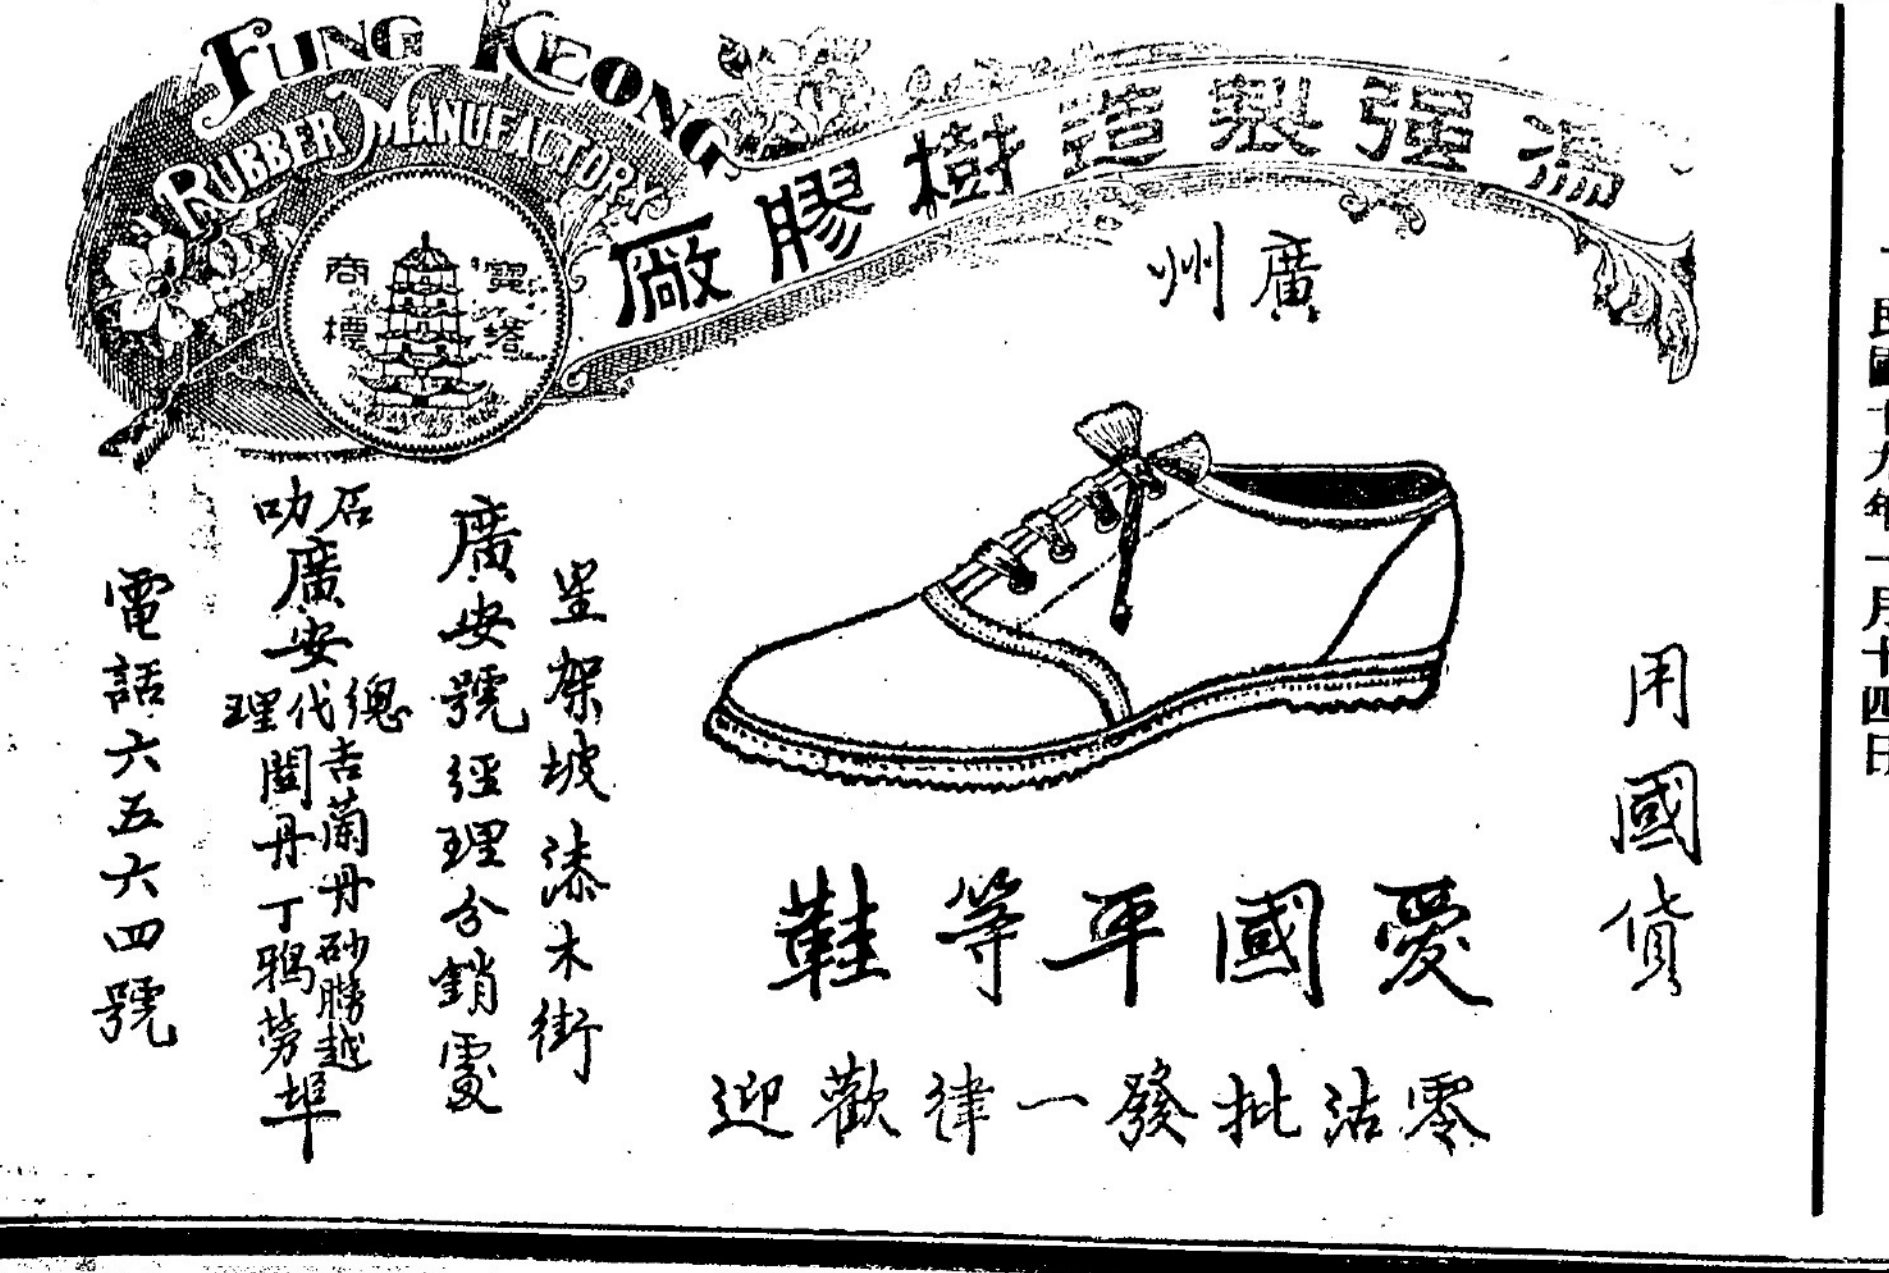 FUNG KEONG
RUBBER MANUFACTORY
馮强製造樹膠廠
寶塔
商標
廣州
用國貨
愛國平等鞋
零沽批發一律歡迎
星架坡漆木街
廣安號經理分銷處
石叻廣安總代理
吉蘭丹砂朥越
關丹丁鴉蒡埠
電話六五六四號
民國十九年一月十四日